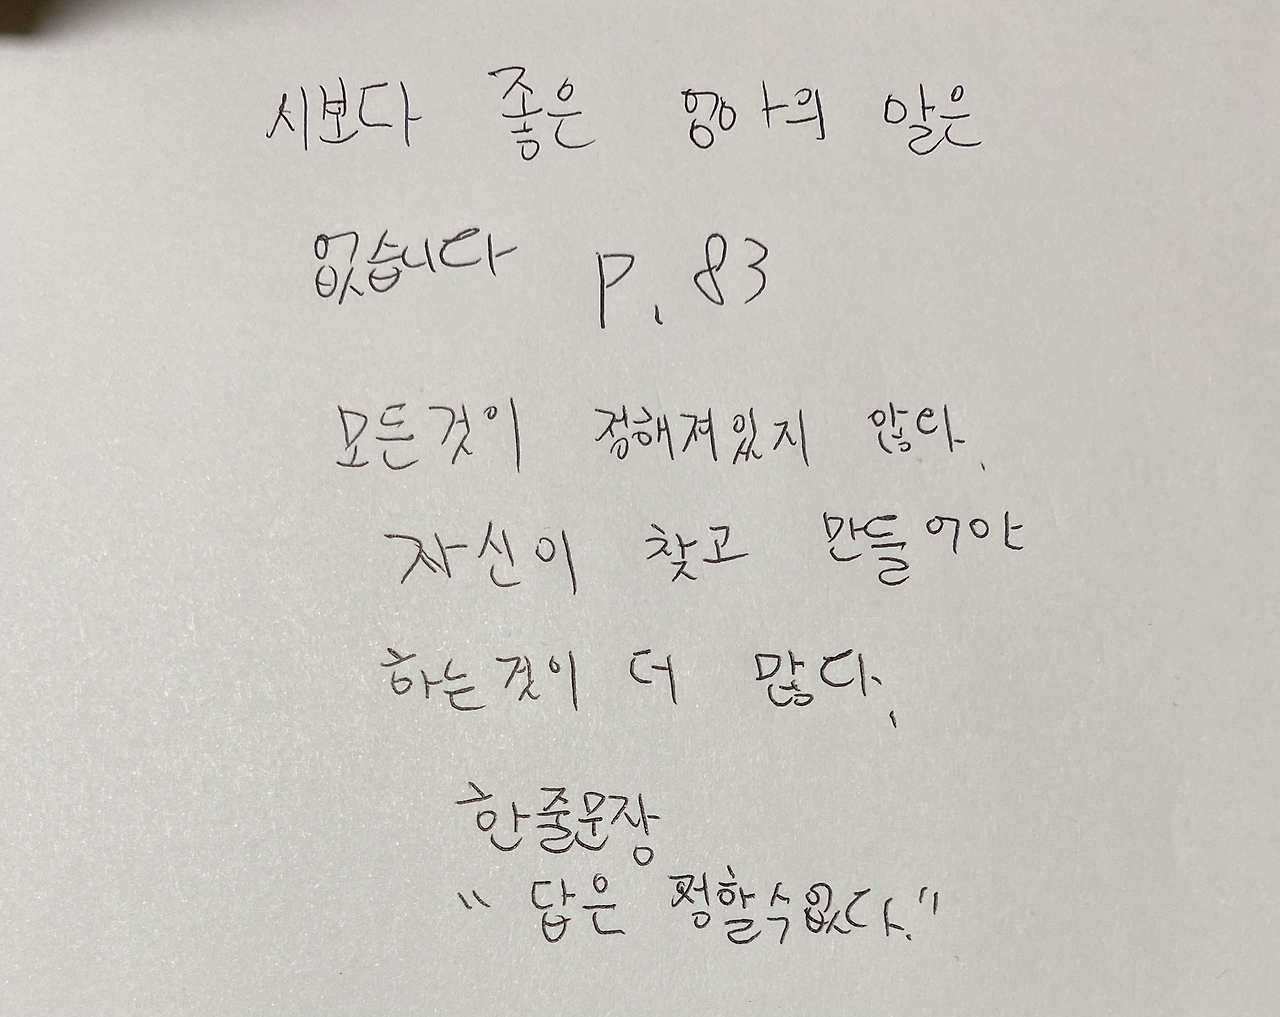 시보다 좋은 엄마의 말은
없습니다 p. 83
모든것이 정해져있지 않다.
자신이 찾고 만들어야
하는것이 더 많다.
한줄문장
“ 답은 정할수없다.”